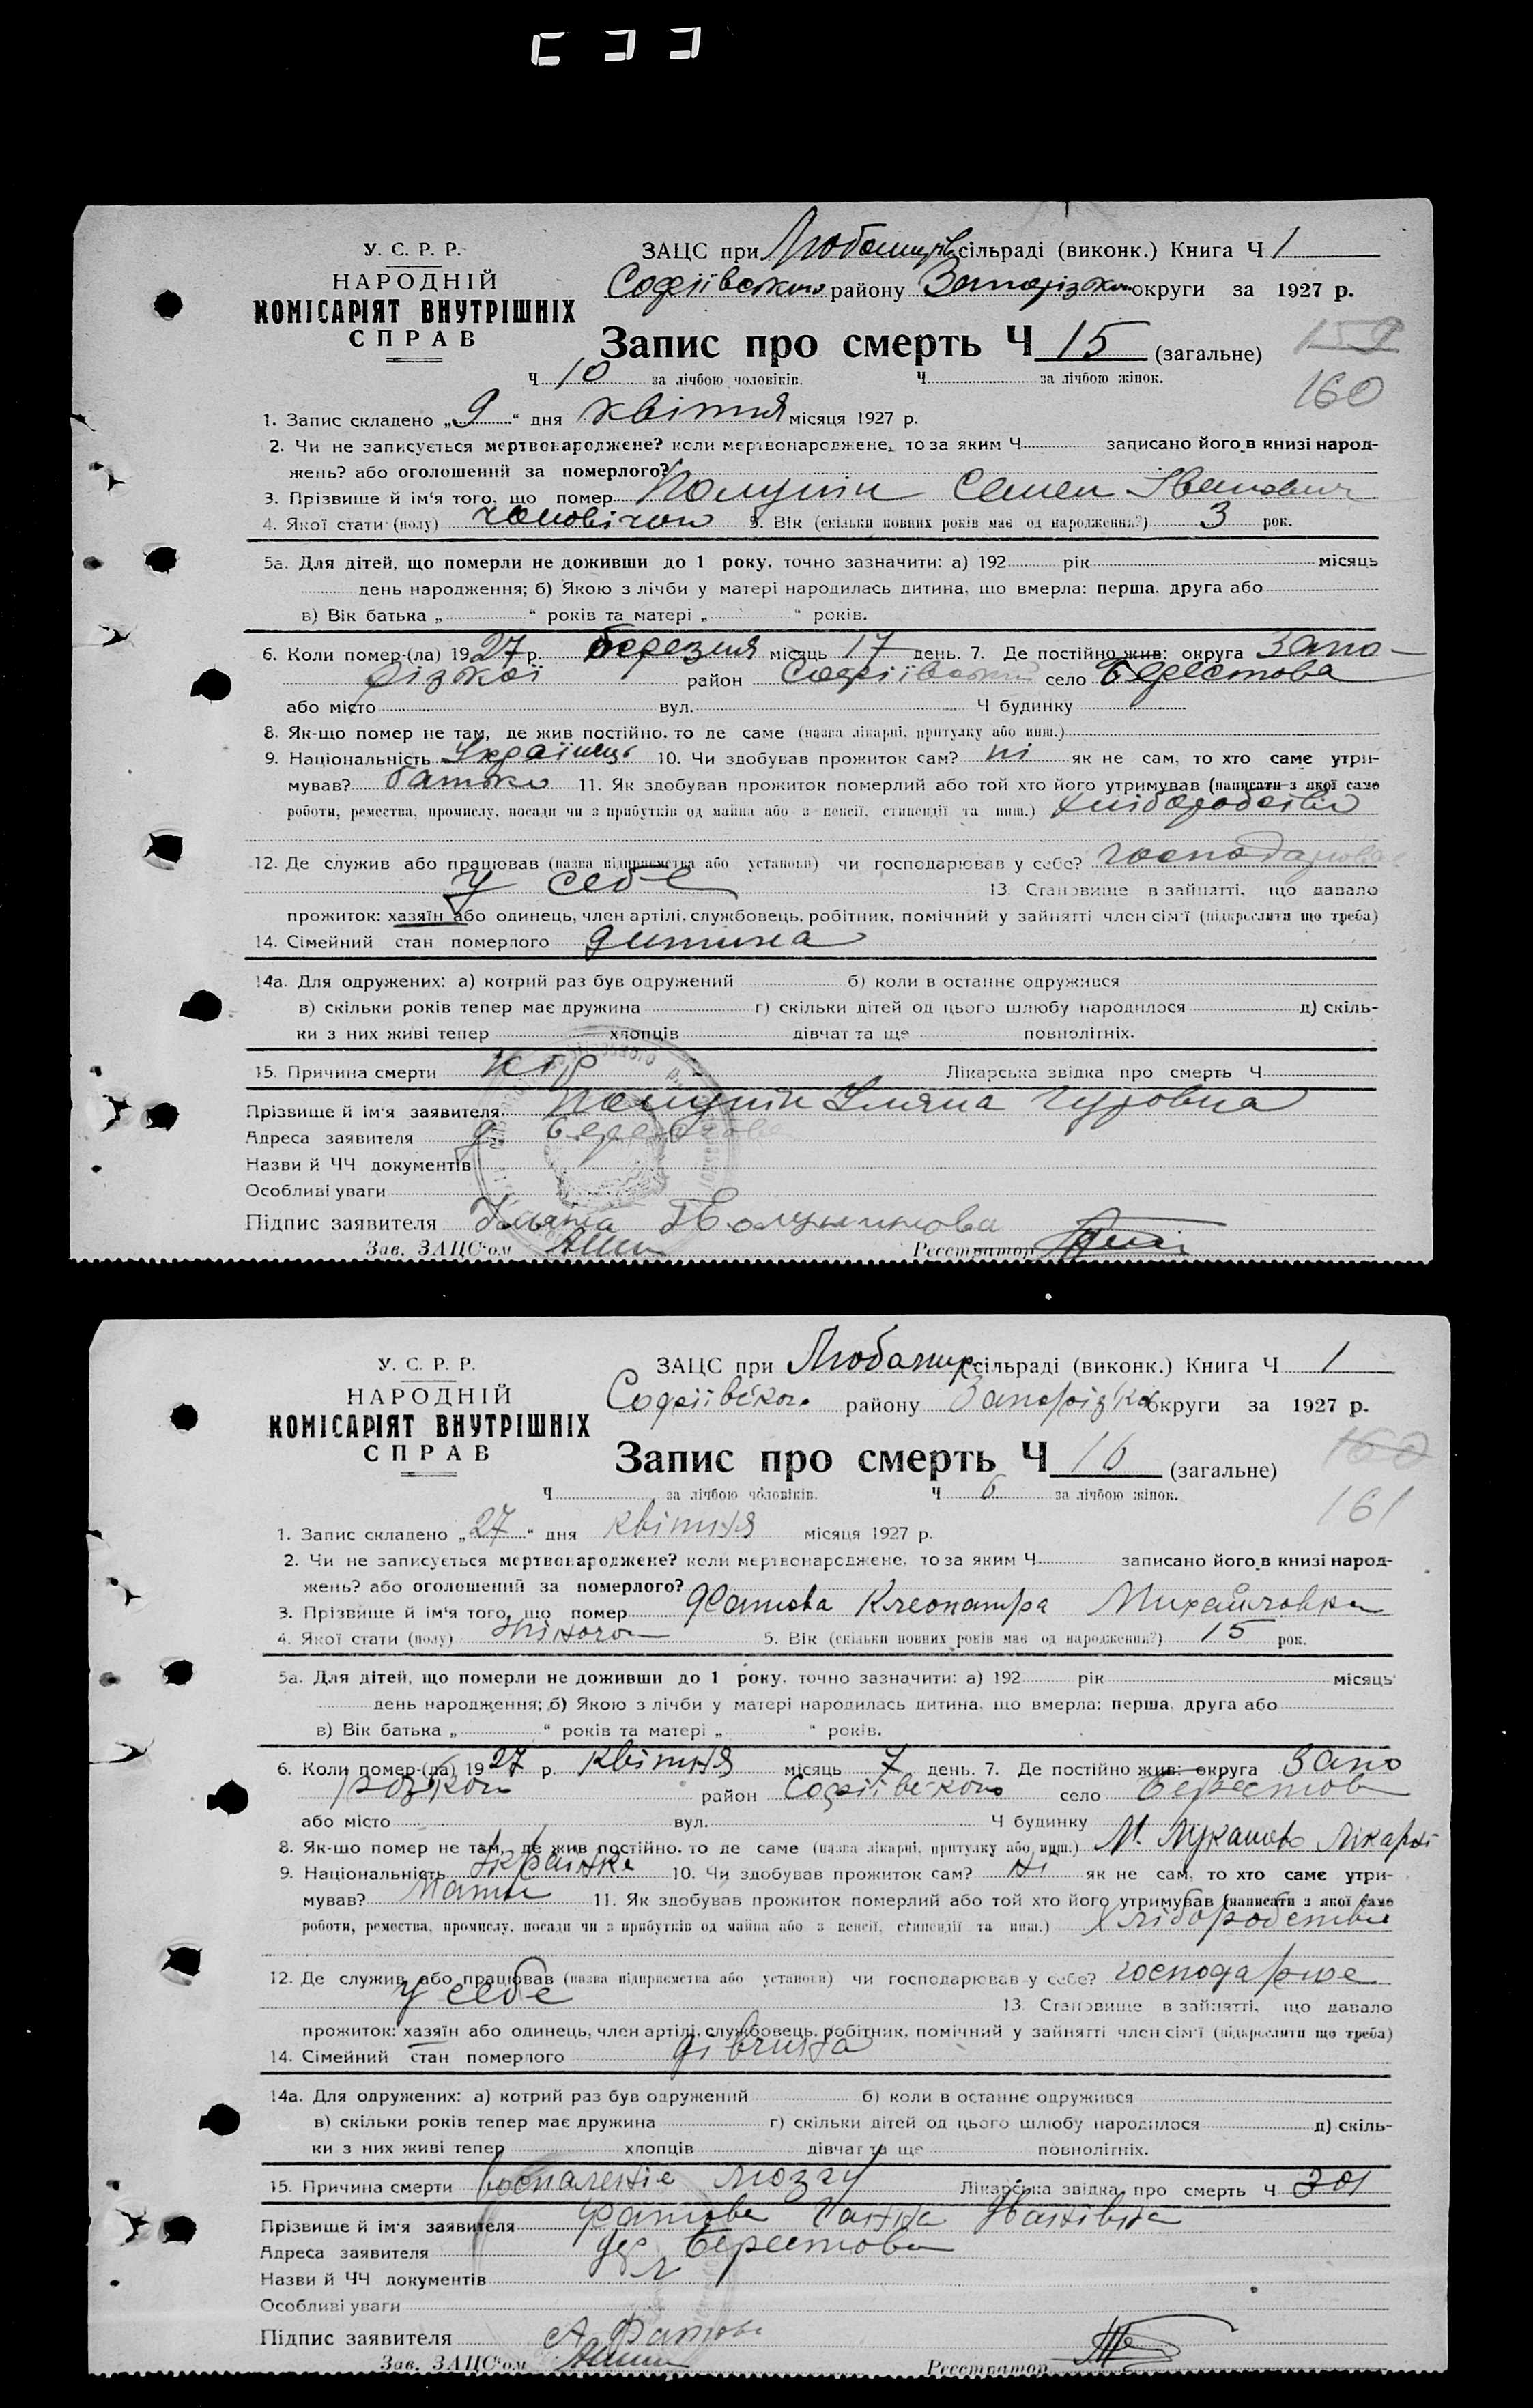 У. С. Р. Р.
НАРОДНІЙ
КОМІСАРІЯТ ВНУТРІШНІХ
СПРАВ
ЗАЦС при сільраді (виконк.) Книга Ч 1
Софіївського району Запорізької округи за 1927 р.
Запис про смерть Ч 15 (загальне)
159
160
Ч 10 за лічбою чоловіків. Ч за лічбою жінок.
1. Запис складено „ 9 “ дня квітня місяця 1927 р.
2. Чи не записується мертвонароджене? коли мертвонароджене, то за яким Ч записано його в книзі народ-
жень? або оголошений за померлого?
3. Прізвище й ім'я того, що помер Полунін Семен Іванович
4. Якої стати (полу) чоловічої 5. Вік (скільки повних років має од народження?) 3 рок.
5а. Для дітей, що померли не доживши до 1 року, точно зазначити: а) 192 рік місяць
день народження; б) Якою з лічби у матері народилась дитина, що вмерла: перша, друга або
в) Вік батька „ “ років та матері „ “ років.
6. Коли помер-(ла) 1927 р. березня місяць 17 день. 7. Де постійно жив: округа Запо-
різької район Софіївський село Берестова
або місто вул. Ч будинку
8. Як-що помер не там, де жив постійно, то де саме (назва лікарні, притулку або инш.)
9. Національність Українець 10. Чи здобував прожиток сам? ні як не сам, то хто саме утри-
мував? батько 11. Як здобував прожиток померлий або той хто його утримував (написати з якої саме
роботи, ремества, промислу, посади чи з прибутків од майна або з пенсії, стипендії та инш.)
12. Де служив або працював (назва підприємства або установи) чи господарював у себе?
у себе 13. Становище в зайнятті, що давало
прожиток: хазяїн або одинець, член артілі, службовець, робітник, помічний у зайнятті член сім'ї (підкреслити що треба)
14. Сімейний стан померлого дитина
14а. Для одружених: а) котрий раз був одружений б) коли в останнє одружився
в) скільки років тепер має дружина г) скільки дітей од цього шлюбу народилося д) скіль-
ки з них живі тепер хлопців дівчат та ще повнолітніх.
15. Причина смерти кір Лікарська звідка про смерть Ч
Прізвище й ім'я заявителя Полунін Уляна
Адреса заявителя
Назви й ЧЧ документів
Особливі уваги
Підпис заявителя Ульяна Полунинова
Зав. ЗАЦС'ом Реєстратор
У. С. Р. Р.
НАРОДНІЙ
КОМІСАРІЯТ ВНУТРІШНІХ
СПРАВ
ЗАЦС при сільраді (виконк.) Книга Ч 1
Софіївського району Запорізької округи за 1927 р.
Запис про смерть Ч 16 (загальне)
160
161
Ч за лічбою чоловіків. Ч 6 за лічбою жінок.
1. Запис складено „ 27 “ дня квітня місяця 1927 р.
2. Чи не записується мертвонароджене? коли мертвонароджене, то за яким Ч записано його в книзі народ-
жень? або оголошений за померлого?
3. Прізвище й ім'я того, що помер Фатова Клеопатра Михайловна
4. Якої стати (полу) жіночої 5. Вік (скільки повних років має од народження?) 15 рок.
5а. Для дітей, що померли не доживши до 1 року, точно зазначити: а) 192 рік місяць
день народження; б) Якою з лічби у матері народилась дитина, що вмерла: перша, друга або
в) Вік батька „ “ років та матері „ “ років.
6. Коли помер-(ла) 1927 р. квітня місяць 7 день. 7. Де постійно жив: округа Запо
район Софіївського село Берестов
або місто вул. Ч будинку
8. Як-що помер не там, де жив постійно, то де саме (назва лікарні, притулку або инш.) М. Лукашово Лікарні
9. Національність Українка 10. Чи здобував прожиток сам? ні як не сам, то хто саме утри-
мував? Мати 11. Як здобував прожиток померлий або той хто його утримував (написати з якої саме
роботи, ремества, промислу, посади чи з прибутків од майна або з пенсії, стипендії та инш.) Хліборобство
12. Де служив або працював (назва підприємства або установи) чи господарював у себе? господарює
у себе 13. Становище в зайнятті, що давало
прожиток: хазяїн або одинець, член артілі, службовець, робітник, помічний у зайнятті член сім'ї (підкреслити що треба)
14. Сімейний стан померлого дівчина
14а. Для одружених: а) котрий раз був одружений б) коли в останнє одружився
в) скільки років тепер має дружина г) скільки дітей од цього шлюбу народилося д) скіль-
ки з них живі тепер хлопців дівчат та ще повнолітніх.
15. Причина смерти Воспаленіе мозгу Лікарська звідка про смерть Ч 301
Прізвище й ім'я заявителя Фатова Ганна Іванівна
Адреса заявителя Берестова
Назви й ЧЧ документів
Особливі уваги
Підпис заявителя А Фатова
Зав. ЗАЦС'ом Реєстратор